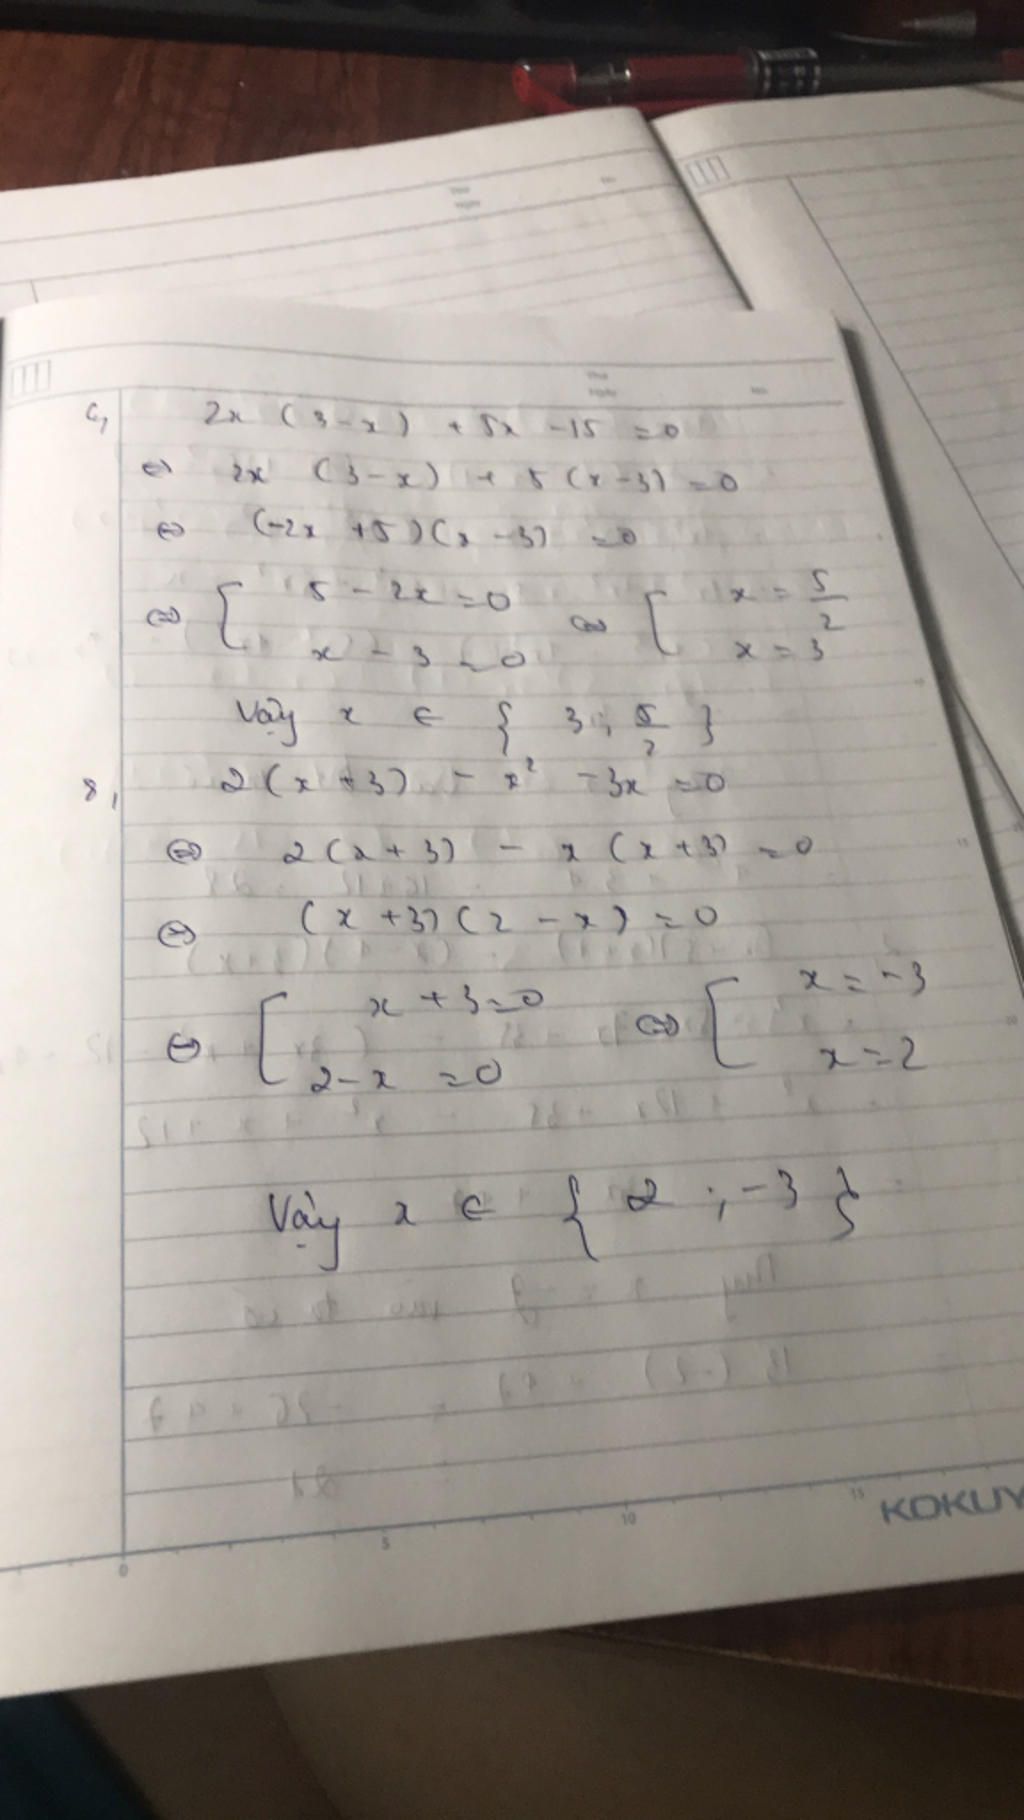 c, 2x (3-x) + 5x -15 =0
⇔ 2x (3-x) + 5 (x-3) =0
⇔ (-2x +5)(x -3) =0
⇔ [ 5 - 2x =0 ⇔ [ x = 5/2
x - 3 =0 x = 3
Vậy x ∈ { 3 ; 5/2 }
8, 2(x +3) - x² -3x =0
⇔ 2(x+3) - x (x+3) =0
⇔ (x +3)(2 -x) =0
⇔ [ x +3=0 ⇔ [ x = -3
2-x =0 x =2
Vậy x ∈ { 2 ; -3 }
5
10
15
0
KOKUY